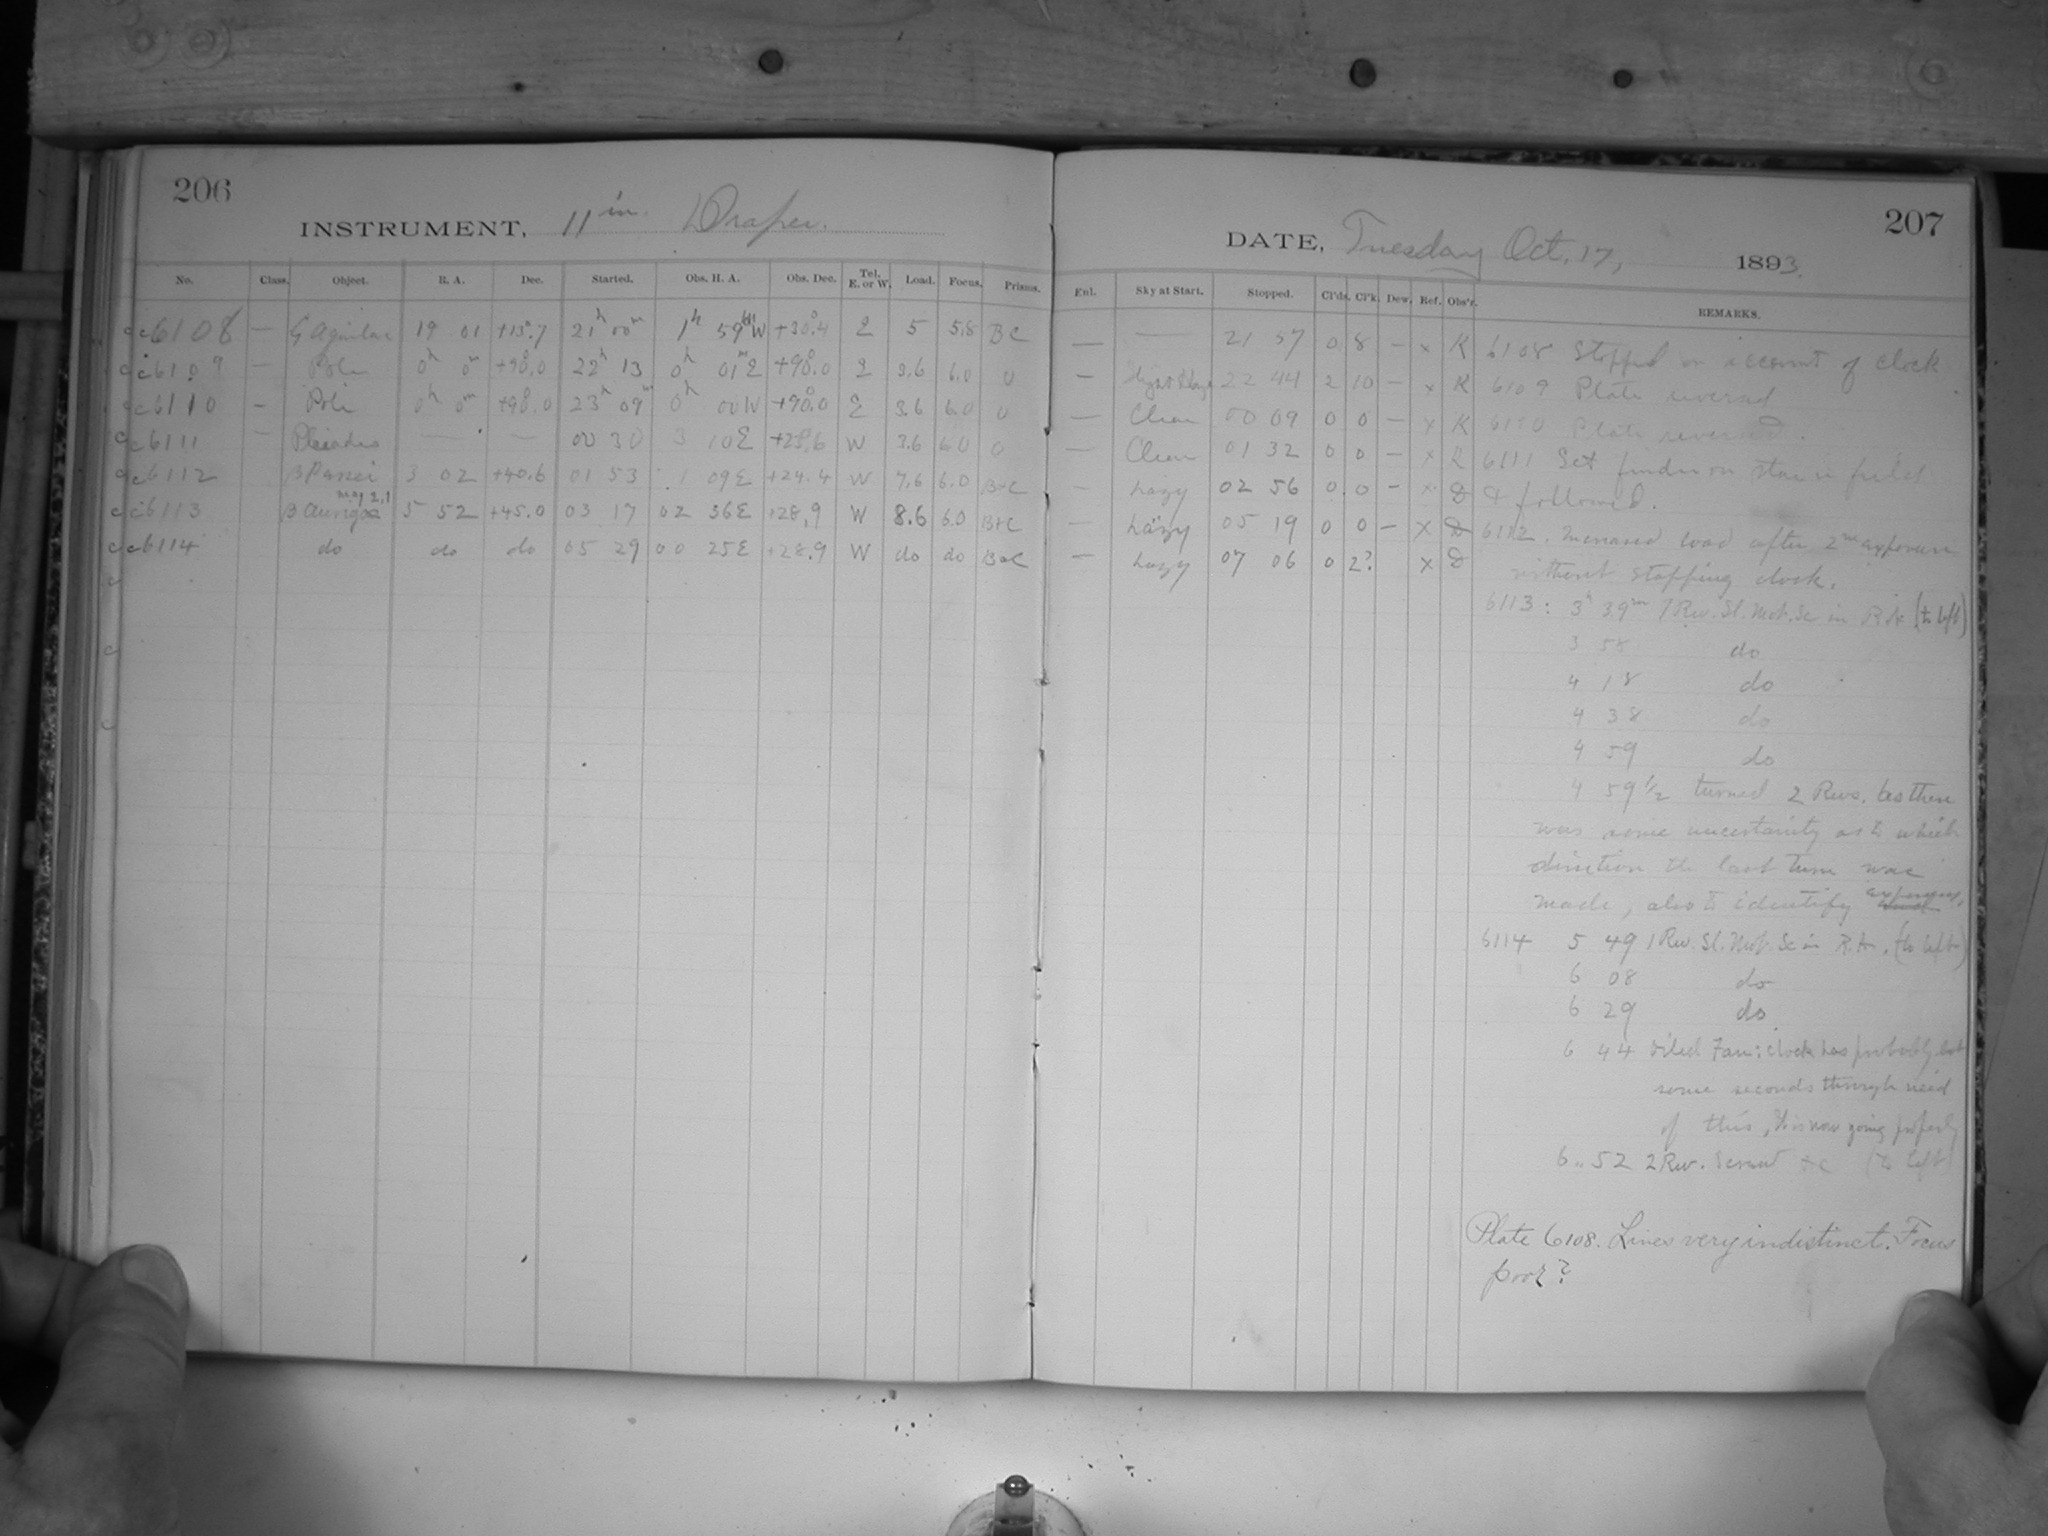 206
INSTRUMENT, 11 in. Draper.
No. Class. Object. R. A. Dec. Started. Obs. H. A. Obs. Dec. Tel. E. or W. Load. Focus. Prisms.
c6108 — Aquilae 19 01 +13°.7 21h 00m 1h 59m W +30°.4 E 5 5.8 BC
c6109 — Pole 0h 0m +90°.0 22h 13 0h 01m E +90°.0 E 3.6 6.0 0
c6110 — Pole 0h 0m +90°.0 23h 09m 0h 00 W +90°.0 E 3.6 6.0 0
c6111 — Pleiades — — 00 30 3 10 E +23°.6 W 3.6 6.0 0
c6112 β Persei 3 02 +40.6 01 53 1 09 E +24.4 W 7.6 6.0 B+C
mag 2.1
c6113 β Aurigae 5 52 +45.0 03 17 02 36 E +28.9 W 8.6 6.0 B+C
c6114 do do do 05 29 00 25 E +28.9 W do do B+C
207
DATE, Tuesday Oct. 17, 1893.
Enl. Sky at Start. Stopped. Cl'ds. Cl'k. Dew. Ref. Obs'r. REMARKS.
— — 21 37 0 8 — x K 6108 Stopped on account of clock
— 22 44 2 10 — x K 6109 Plate reversed
— Clear 00 09 0 0 — x K 6110 Plate reversed.
— Clear 01 32 0 0 — x K 6111 Set finder on star in field
— hazy 02 56 0 0 — x D & followed.
— hazy 05 19 0 0 — x D 6112. Increased load after 2nd exposure
— hazy 07 06 0 2? x D without stopping clock.
6113: 3h 39m 1 Rev. Sl. Mot. Sc in R.A. (to left)
3 58 do
4 18 do
4 38 do
4 59 do
4 59 1/2 turned 2 Revs. as there
was some uncertainty as to which
direction the last turn was
made, also to identify exposures.
6114 5 49 1 Rev. Sl. Mot. Sc in R.A. (to left)
6 08 do
6 29 do
6 44 oiled Fan: clock has probably lost
some seconds through need
of this, It is now going properly
6 52 2 Rev. Screw &c (to left)
Plate 6108. Lines very indistinct. Focus
poor?